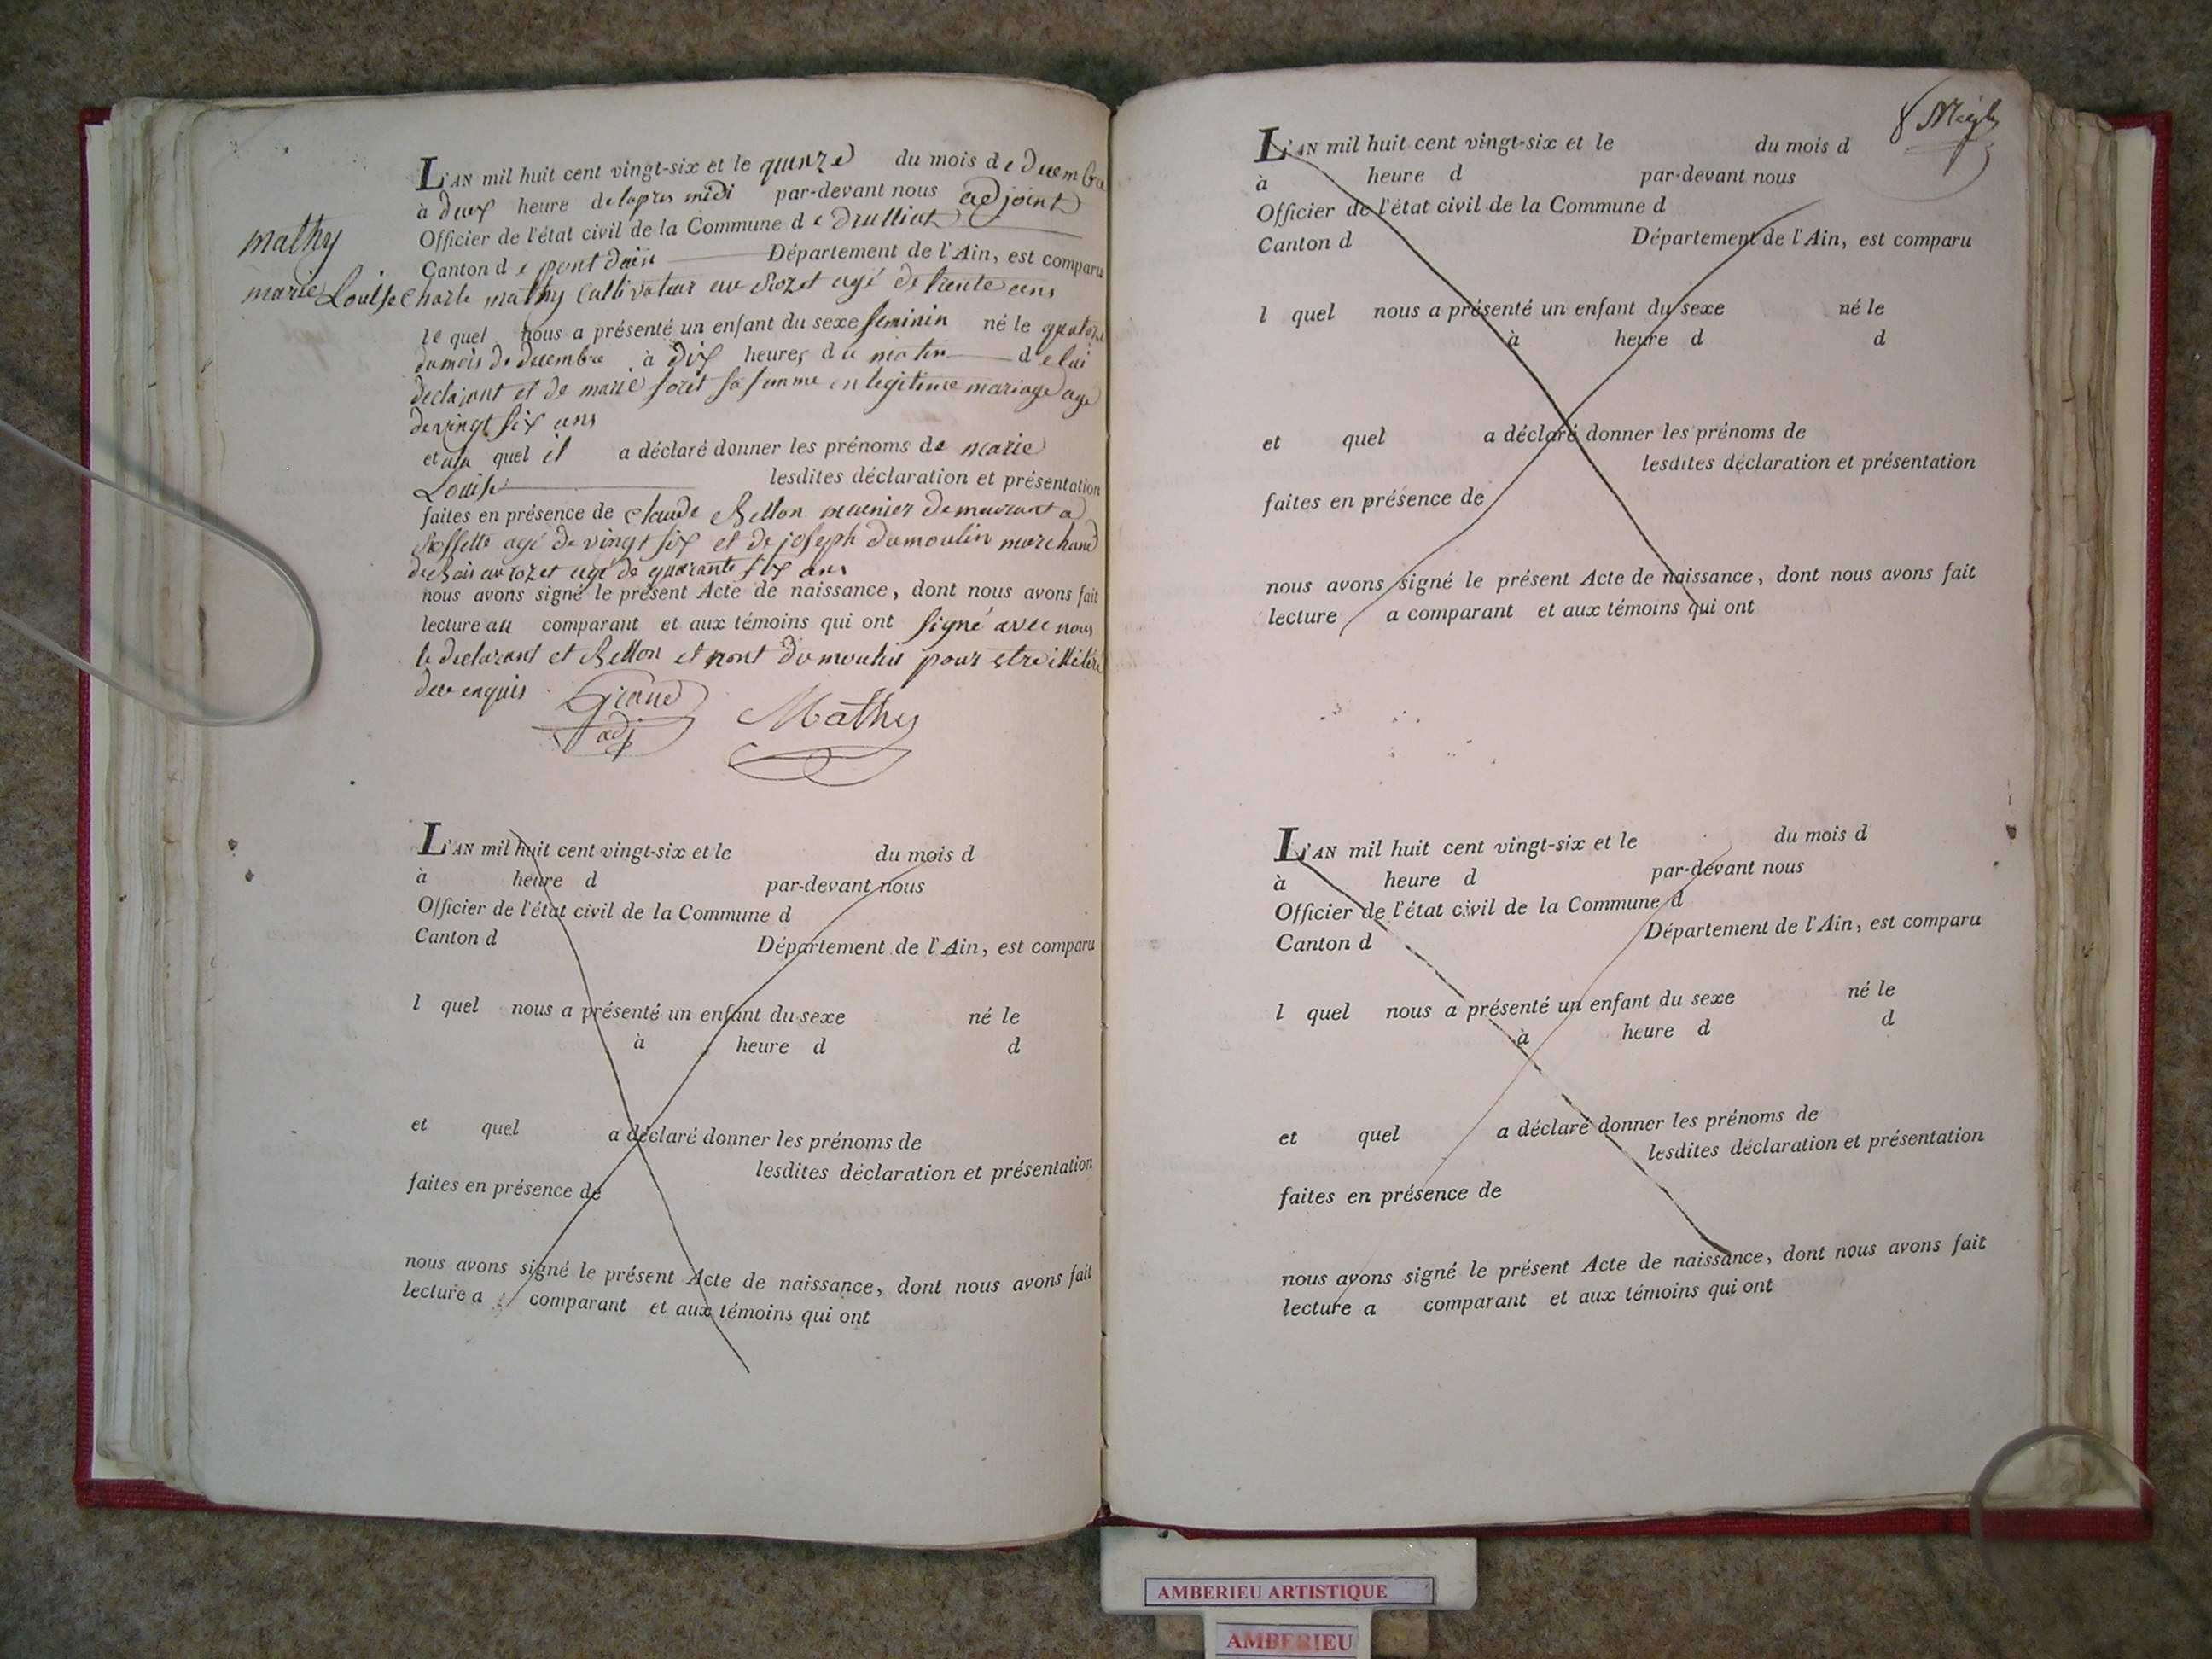 mathy
marie Louise
L'AN mil huit cent vingt-six et le quinze du mois de decembre
à deux heure de lapres midi par-devant nous adjoint
Officier de l'état civil de la Commune de druilliat
Canton de pont dain Département de l'Ain, est comparu
Charle mathy Cultivateur au Rozet agé de trente ans
le quel nous a présenté un enfant du sexe feminin né le quatorze
du mois de decembre à dix heures du matin de lui
declarant et de marie foret sa femme en legitime mariage age
de vingt six ans
et au quel il a déclaré donner les prénoms de marie
Louise lesdites déclaration et présentation
faites en présence de claude Bellon meunier demeurant a
agé de vingt six et de joseph dumoulin marchand
de bois au rozet agé de quarante six ans
nous avons signé le présent Acte de naissance, dont nous avons fait
lecture au comparant et aux témoins qui ont signé avec nous
le declarant et Bellon et nont dumoulin pour etre illitéré
de ce enquis
adj Mathy
L'AN mil huit cent vingt-six et le du mois d
à heure d par-devant nous
Officier de l'état civil de la Commune d
Canton d Département de l'Ain, est comparu
l quel nous a présenté un enfant du sexe né le
à heure d d
et quel a déclaré donner les prénoms de
lesdites déclaration et présentation
faites en présence de
nous avons signé le présent Acte de naissance, dont nous avons fait
lecture a comparant et aux témoins qui ont
8
L'AN mil huit cent vingt-six et le du mois d
à heure d par-devant nous
Officier de l'état civil de la Commune d
Canton d Département de l'Ain, est comparu
l quel nous a présenté un enfant du sexe né le
à heure d d
et quel a déclaré donner les prénoms de
lesdites déclaration et présentation
faites en présence de
nous avons signé le présent Acte de naissance, dont nous avons fait
lecture a comparant et aux témoins qui ont
L'AN mil huit cent vingt-six et le du mois d
à heure d par-devant nous
Officier de l'état civil de la Commune d
Canton d Département de l'Ain, est comparu
l quel nous a présenté un enfant du sexe né le
à heure d d
et quel a déclaré donner les prénoms de
lesdites déclaration et présentation
faites en présence de
nous avons signé le présent Acte de naissance, dont nous avons fait
lecture a comparant et aux témoins qui ont
AMBERIEU ARTISTIQUE
AMBERIEU